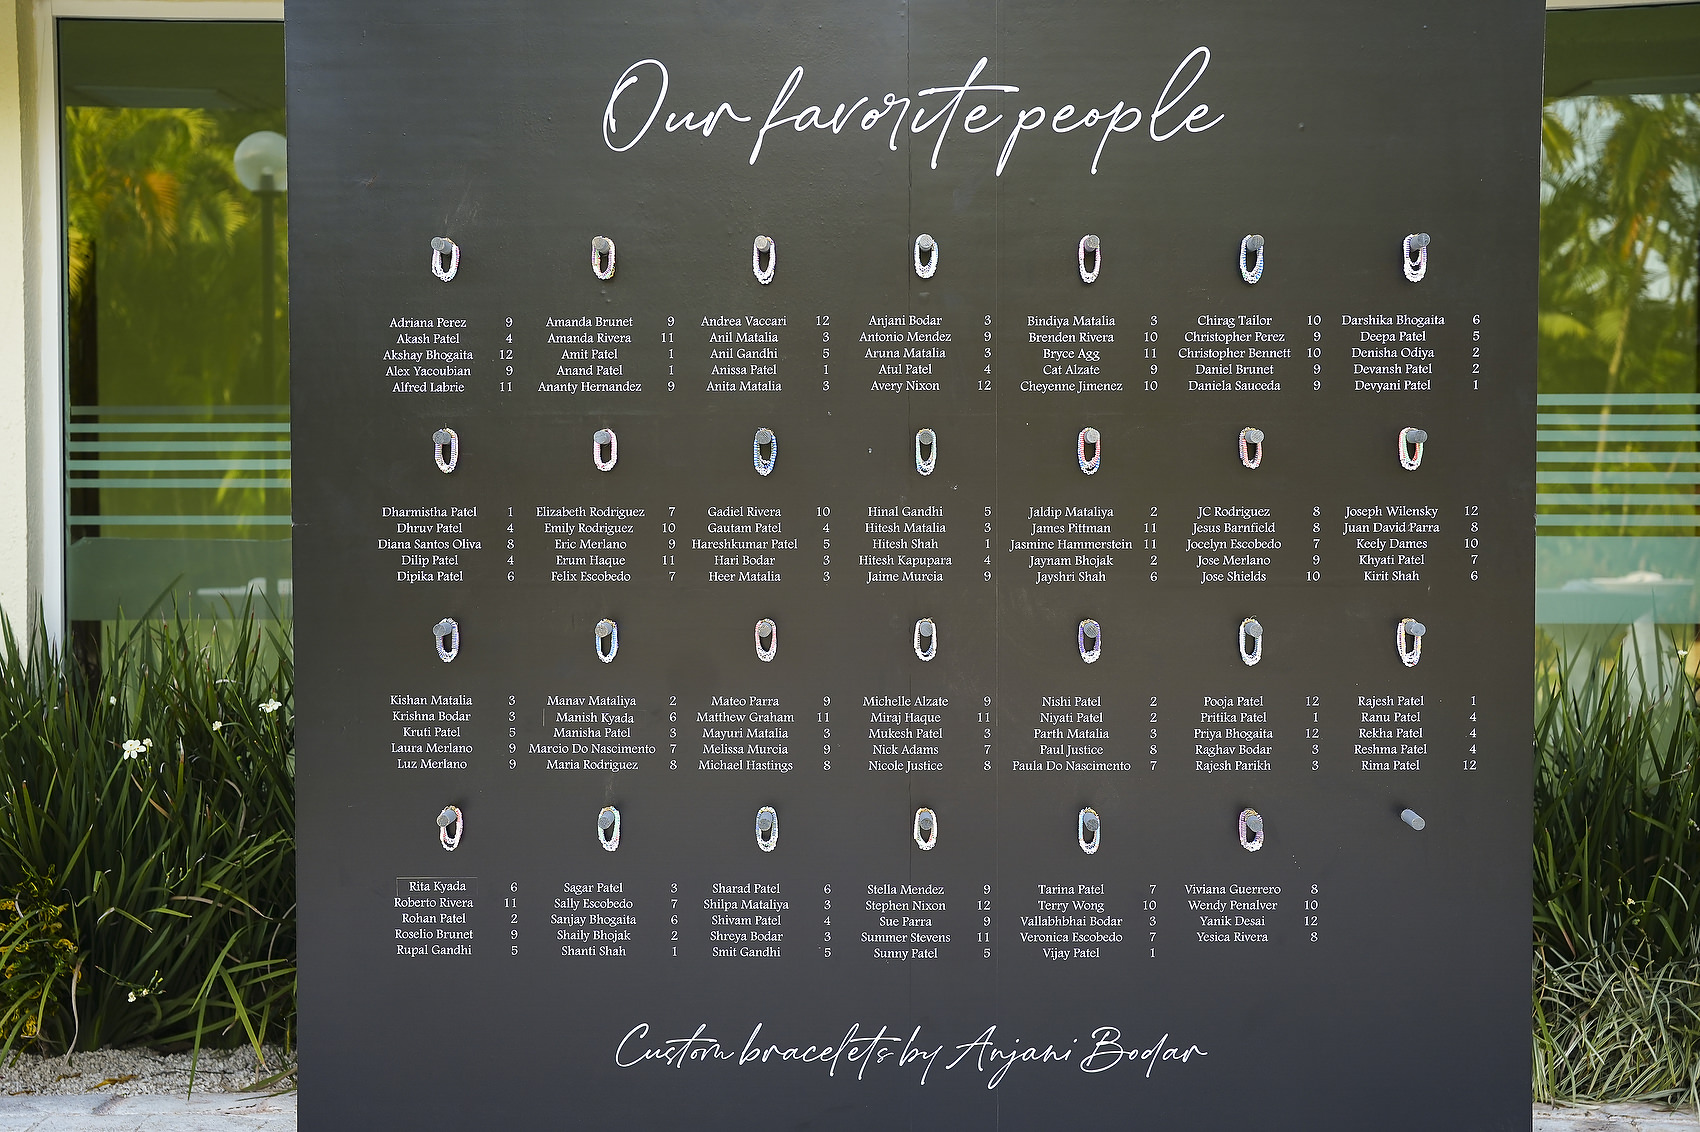 Our favorite people
Adriana Perez 9
Akash Patel 4
Akshay Bhogaita 12
Alex Yacoubian 9
Alfred Labrie 11
Amanda Brunet 9
Amanda Rivera 11
Amit Patel 1
Anand Patel 1
Ananty Hernandez 9
Andrea Vaccari 12
Anil Matalia 3
Anil Gandhi 5
Anissa Patel 1
Anita Matalia 3
Anjani Bodar 3
Antonio Mendez 9
Aruna Matalia 3
Atul Patel 4
Avery Nixon 12
Bindiya Matalia 3
Brenden Rivera 10
Bryce Agg 11
Cat Alzate 9
Cheyenne Jimenez 10
Chirag Tailor 10
Christopher Perez 9
Christopher Bennett 10
Daniel Brunet 9
Daniela Sauceda 9
Darshika Bhogaita 6
Deepa Patel 5
Denisha Odiya 2
Devansh Patel 2
Devyani Patel 1
Dharmistha Patel 1
Dhruv Patel 4
Diana Santos Oliva 8
Dilip Patel 4
Dipika Patel 6
Elizabeth Rodriguez 7
Emily Rodriguez 10
Eric Merlano 9
Erum Haque 11
Felix Escobedo 7
Gadiel Rivera 10
Gautam Patel 4
Hareshkumar Patel 5
Hari Bodar 3
Heer Matalia 3
Hinal Gandhi 5
Hitesh Matalia 3
Hitesh Shah 1
Hitesh Kapupara 4
Jaime Murcia 9
Jaldip Mataliya 2
James Pittman 11
Jasmine Hammerstein 11
Jaynam Bhojak 2
Jayshri Shah 6
JC Rodriguez 8
Jesus Barnfield 8
Jocelyn Escobedo 7
Jose Merlano 9
Jose Shields 10
Joseph Wilensky 12
Juan David Parra 8
Keely Dames 10
Khyati Patel 7
Kirit Shah 6
Kishan Matalia 3
Krishna Bodar 3
Kruti Patel 5
Laura Merlano 9
Luz Merlano 9
Manav Mataliya 2
Manish Kyada 6
Manisha Patel 3
Marcio Do Nascimento 7
Maria Rodriguez 8
Mateo Parra 9
Matthew Graham 11
Mayuri Matalia 3
Melissa Murcia 9
Michael Hastings 8
Michelle Alzate 9
Miraj Haque 11
Mukesh Patel 3
Nick Adams 7
Nicole Justice 8
Nishi Patel 2
Niyati Patel 2
Parth Matalia 3
Paul Justice 8
Paula Do Nascimento 7
Pooja Patel 12
Pritika Patel 1
Priya Bhogaita 12
Raghav Bodar 3
Rajesh Parikh 3
Rajesh Patel 1
Ranu Patel 4
Rekha Patel 4
Reshma Patel 4
Rima Patel 12
Rita Kyada 6
Roberto Rivera 11
Rohan Patel 2
Roselio Brunet 9
Rupal Gandhi 5
Sagar Patel 3
Sally Escobedo 7
Sanjay Bhogaita 6
Shaily Bhojak 2
Shanti Shah 1
Sharad Patel 6
Shilpa Mataliya 3
Shivam Patel 4
Shreya Bodar 3
Smit Gandhi 5
Stella Mendez 9
Stephen Nixon 12
Sue Parra 9
Summer Stevens 11
Sunny Patel 5
Tarina Patel 7
Terry Wong 10
Vallabhbhai Bodar 3
Veronica Escobedo 7
Vijay Patel 1
Viviana Guerrero 8
Wendy Penalver 10
Yanik Desai 12
Yesica Rivera 8
Custom bracelets by Anjani Bodar